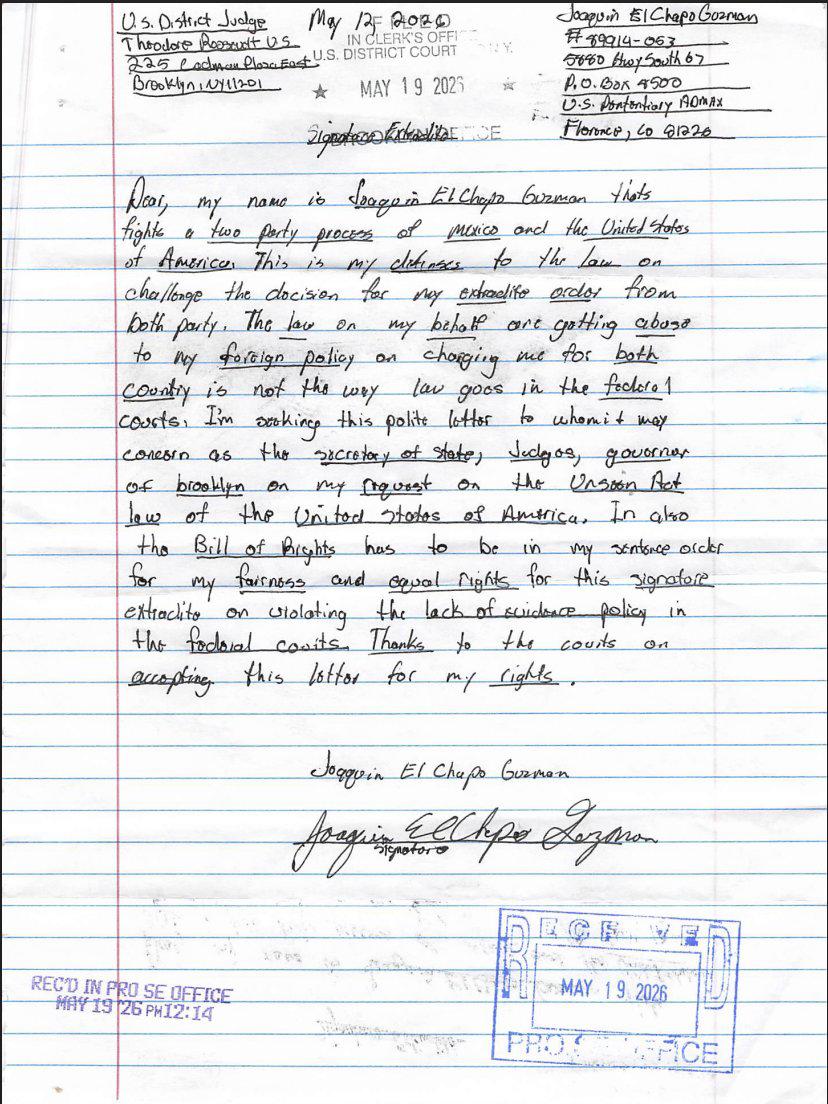 U.S. District Judge
Theodore Roosevelt U.S.
225 Cadman Plaza East
Brooklyn, NY 11201
May 12, 2026
FILED
IN CLERK'S OFFICE
U.S. DISTRICT COURT N.Y.
★ MAY 19 2026 ★
OFFICE
Joaquin El Chapo Guzman
# 89914-053
5880 Hwy South 67
P.O. Box 8500
U.S. Pentontiary ADMAX
Florence, Co 81226
Signature Extradite
Dear, my name is Joaquin El Chapo Guzman thats
fights a two party process of mexico and the United States
of America. This is my defenses to the law on
challenge the decision for my extradite order from
both party. The law on my behalf are getting abuse
to my foreign policy on charging me for both
country is not the way law goes in the federal
courts. I'm seeking this polite letter to whom it may
concern as the secretary of state, Judges, governor
of brooklyn on my request on the Unseen Act
law of the United States of America. In also
the Bill of Rights has to be in my sentence order
for my fairness and equal rights for this signature
extradite on violating the lack of evidence policy in
the federal courts. Thanks to the courts on
accepting this letter for my rights.
Joaquin El Chapo Guzman
Joaquin El Chapo Guzman
signature
REC'D IN PRO SE OFFICE
MAY 19 '26 PM12:14
RECEIVED
MAY 19 2026
PRO SE OFFICE